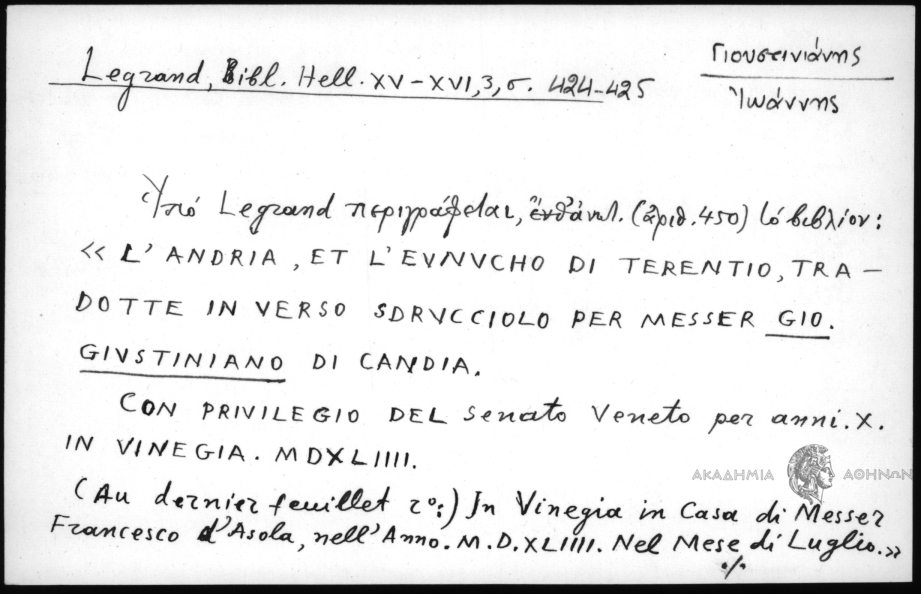 Γιουστινιάνης
Legrand, Bibl. Hell. XV-XVI, 3, σ. 424-425
Ἰωάννης
Ὑπό Legrand περιγράφεται, ἔνθ' ἀνωτ. (ἀριθ. 450) τό βιβλίον:
« L' ANDRIA, ET L' EVNVCHO DI TERENTIO, TRA-
DOTTE IN VERSO SDRVCCIOLO PER MESSER GIO.
GIVSTINIANO DI CANDIA.
CON PRIVILEGIO DEL Senato Veneto per anni. X.
IN VINEGIA. MDXLIIII.
ΑΚΑΔΗΜΙΑ ΑΘΗΝΩΝ
(Au dernier feuillet ro:) In Vinegia in Casa di Messer
Francesco d'Asola, nell' Anno. M.D.XLIIII. Nel Mese di Luglio.»
./.